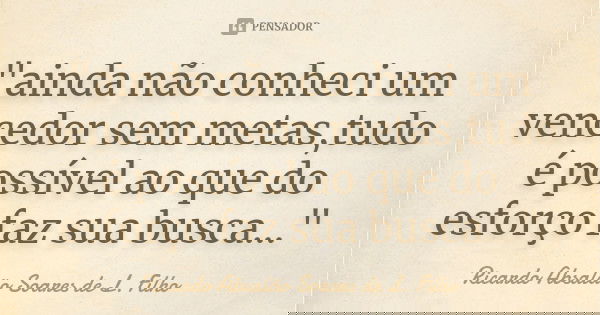 PENSADOR
"ainda não conheci um
vencedor sem metas,tudo
é possível ao que do
esforço faz sua busca..."
Ricardo Absalão Soares de L. Filho